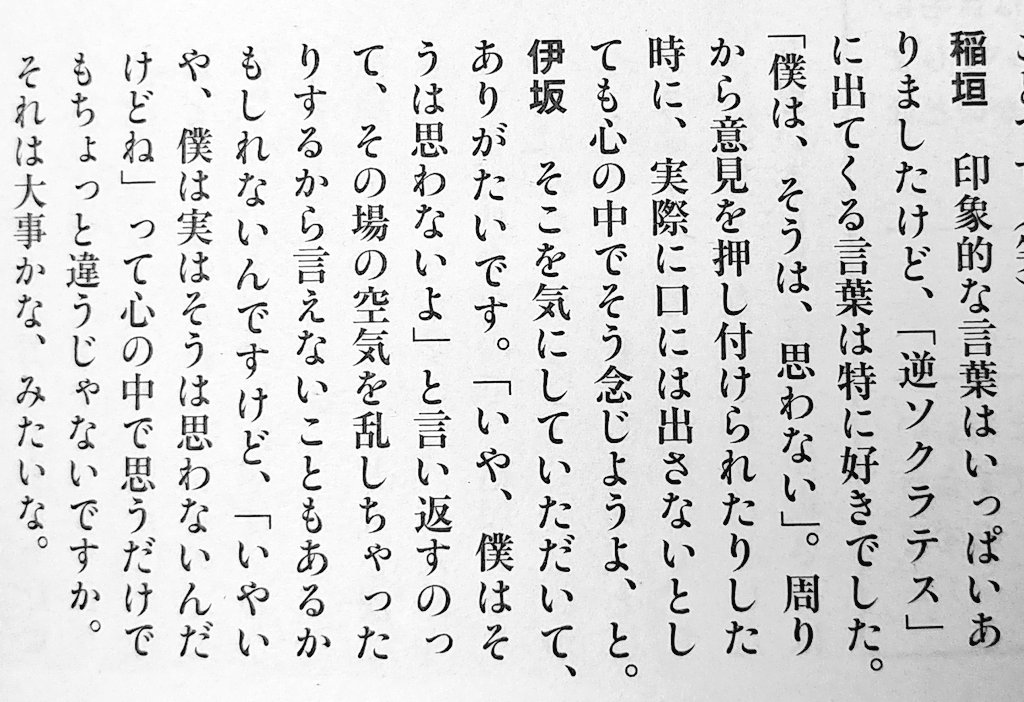 稲垣　印象的な言葉はいっぱいあ
りましたけど、「逆ソクラテス」
に出てくる言葉は特に好きでした。
「僕は、そうは、思わない」。周り
から意見を押し付けられたりした
時に、実際に口には出さないとし
ても心の中でそう念じようよ、と。
伊坂　そこを気にしていただいて、
ありがたいです。「いや、僕はそ
うは思わないよ」と言い返すのっ
て、その場の空気を乱しちゃった
りするから言えないこともあるか
もしれないんですけど、「いやい
や、僕は実はそうは思わないんだ
けどね」って心の中で思うだけで
もちょっと違うじゃないですか。
それは大事かな、みたいな。